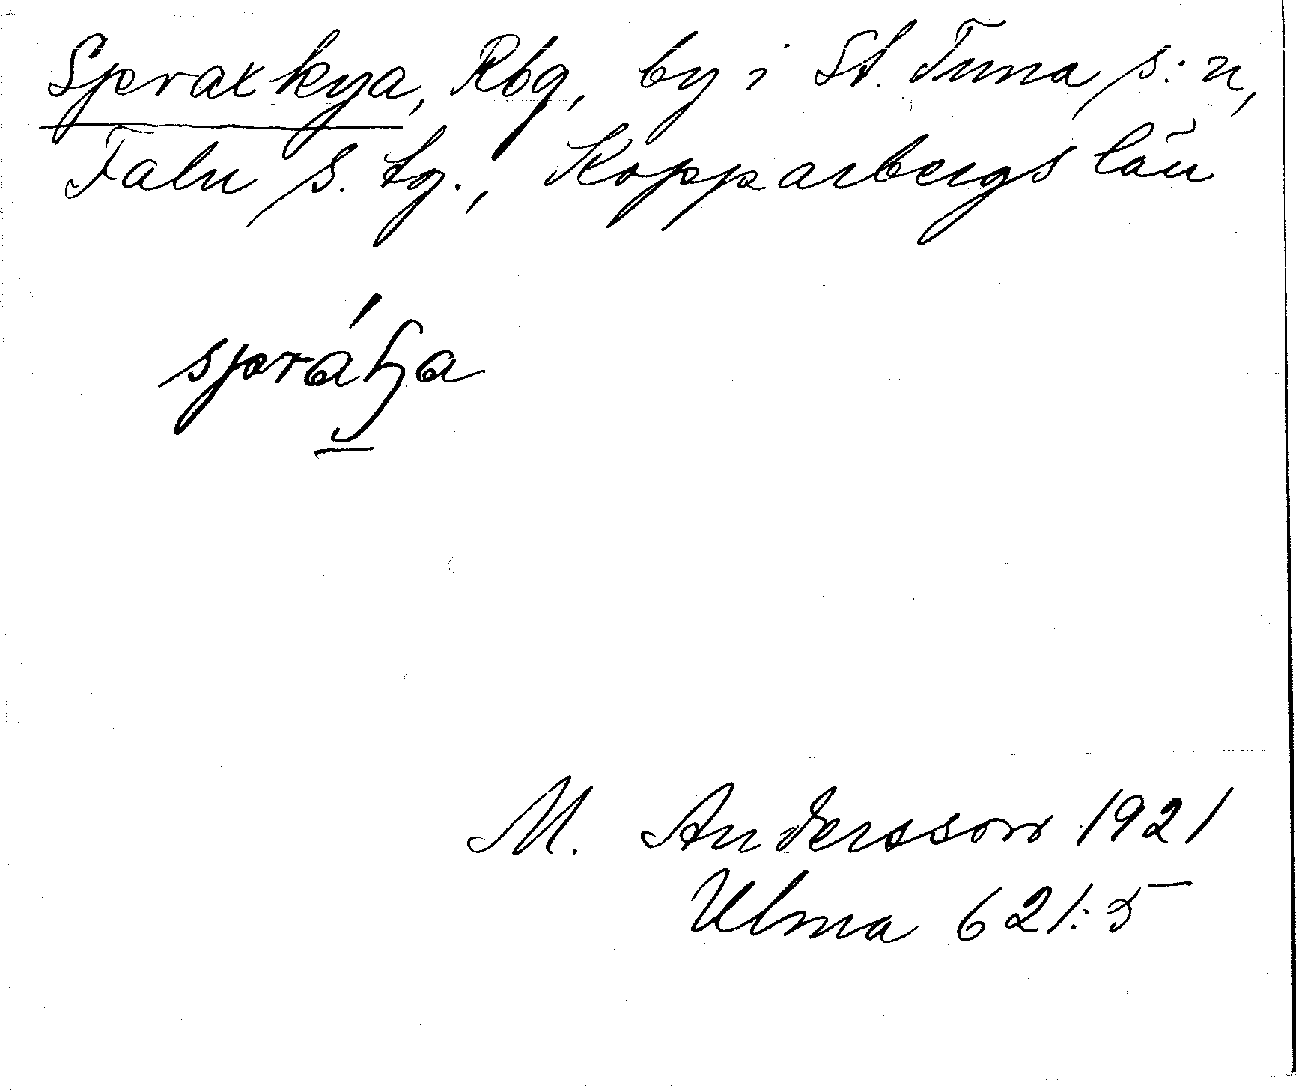 Spraxkya, Rbg, by i St. Tuna s:n,
Falu s. tg., Kopparbergs län
M. Andersson 1921
Ulma 621:5